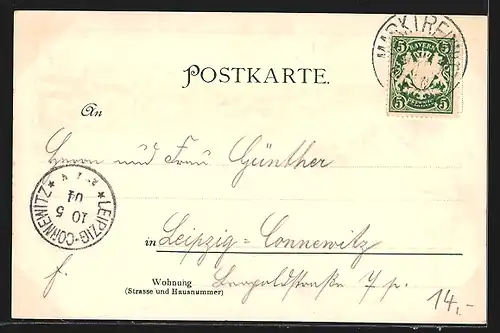 POSTKARTE.
BAYERN
5 5
PFENNIG
An
Herrn und Frau Günther
LEIPZIG-CONNEWITZ
10 5
04
in Leipzig=Connewitz
f.
Wohnung
(Strasse und Hausnummer)
Leopoldstraße 7 p.
14,-